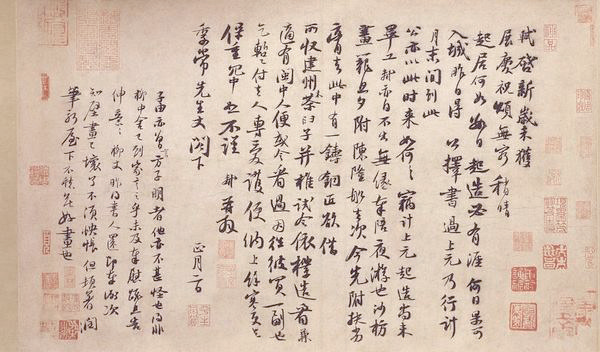 軾啓新歲未獲
展慶祝頌無窮稍晴
起居何如數日起造必有涯何日果可
入城昨日得 公擇書過上元乃行計
月末間到此
公亦以此時來如何々竊計上元起造尚未
畢工軾亦自不出無緣奉陪夜遊也沙枋
畫籠旦夕附陳隆船去次今先附扶劣
膏去此中有一鑄銅匠欲借
所收建州木茶臼子并椎試令依樣造看兼
適有閩中人便或令看過因往彼買一副也
乞暫付去人專愛護便納上餘寒更乞
保重冗中恕不謹 軾再拜
季常先生丈閣下
正月二日
子由亦曾言方子明者他亦不甚怪也得非
柳中舍已到家言之乎未及奉慰疏且告
伸意々柳丈昨得書人還即奉謝次
知壁畫已壞了不須怏悵但頓著潤
筆新屋下不愁無好畫也